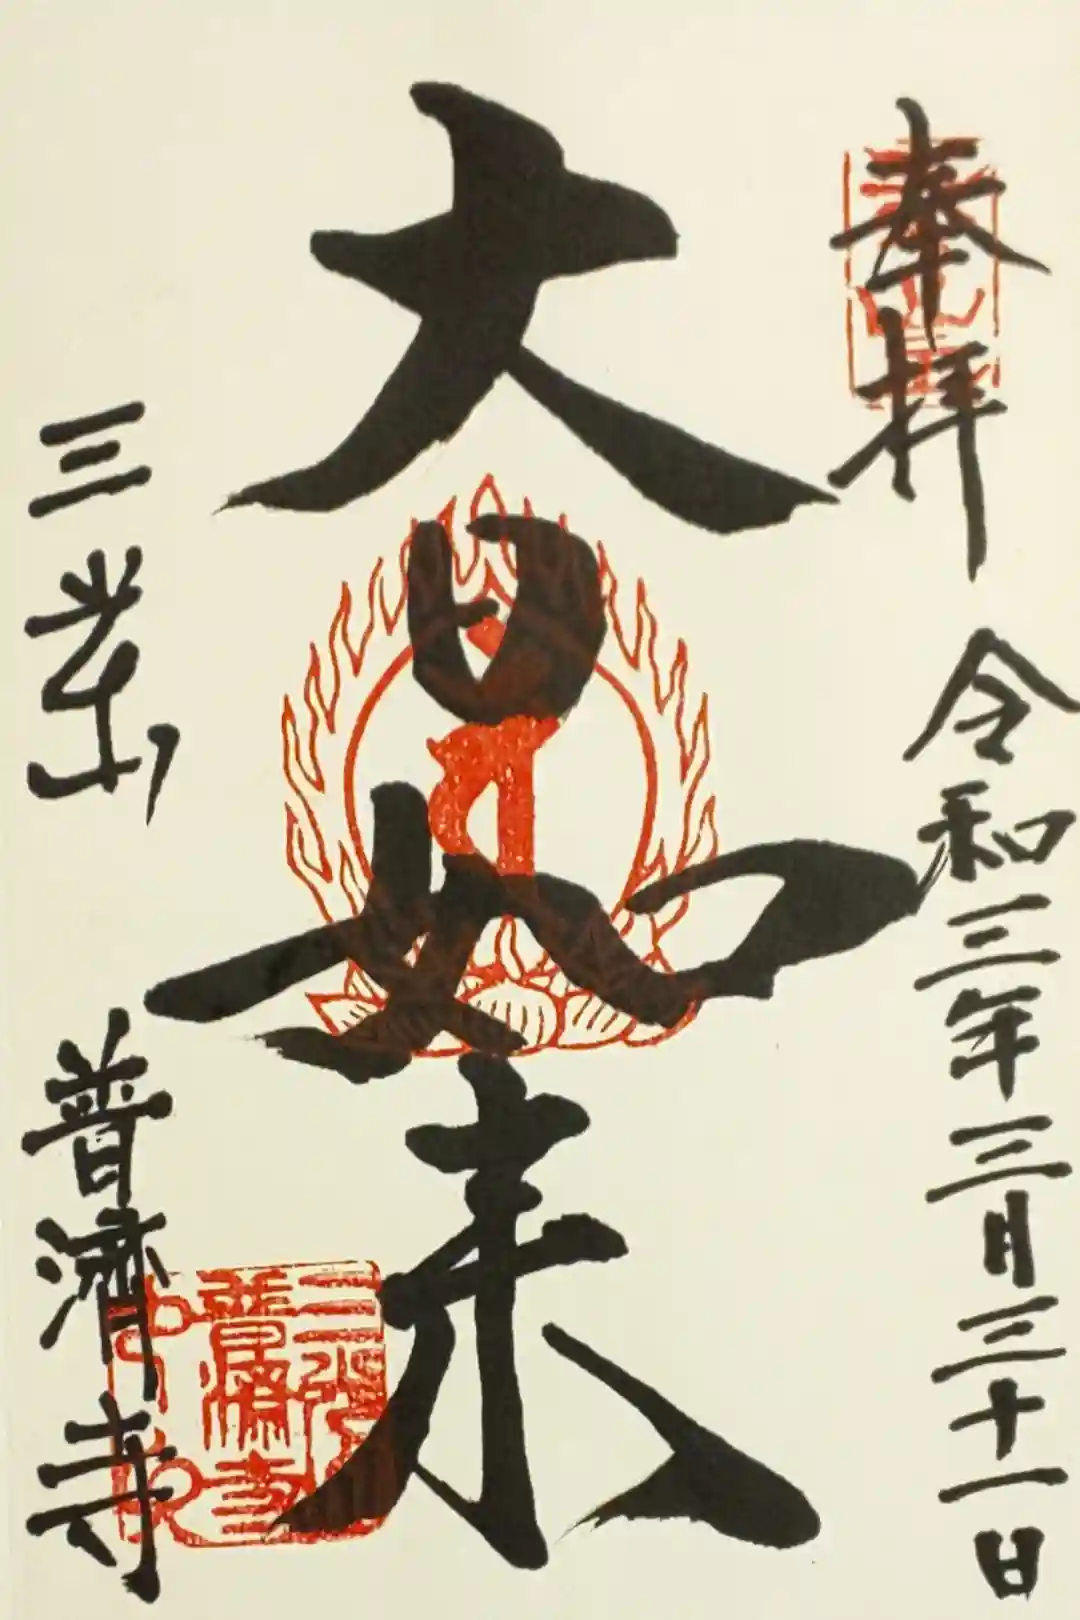 奉拝
令和三年三月三十一日
大日如来
三光山
普濟寺
普濟寺